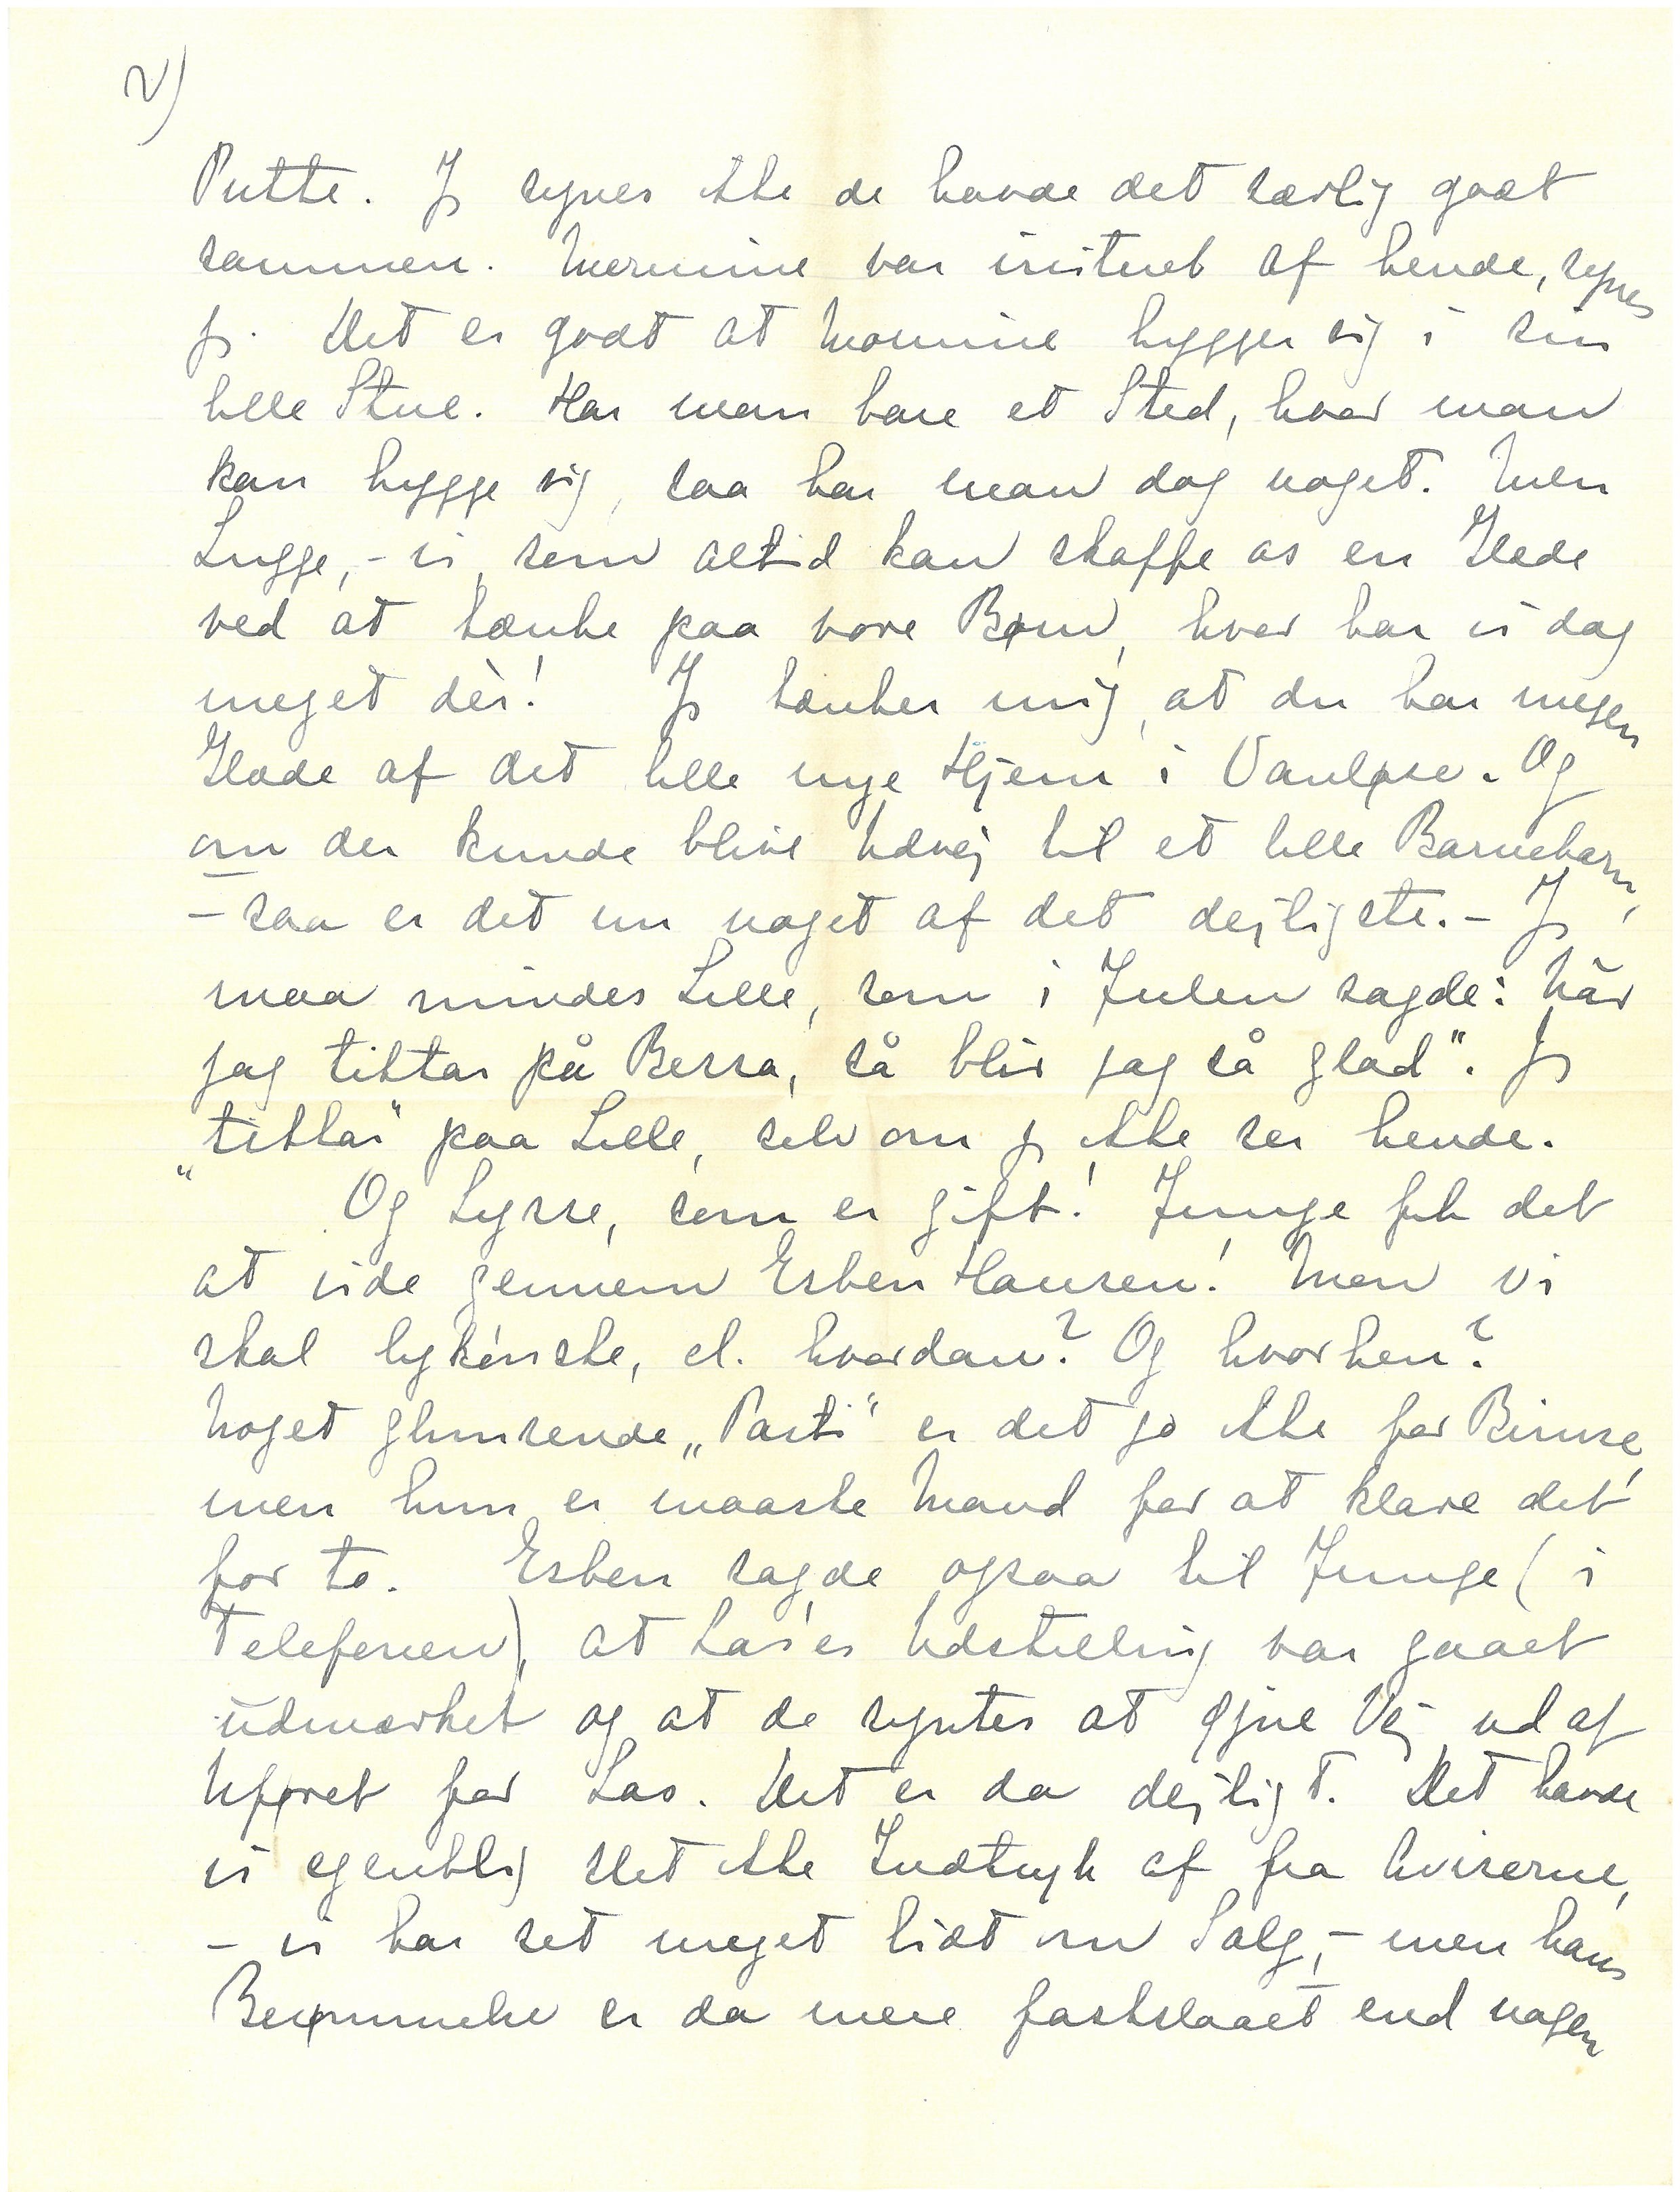 2)
Putte. Jg synes ikke de havde det særlig godt
sammen. Mornine var irriteret af hende, synes
jg. Det er godt at Mornine hygger sig i sin
lille Stue. Har man bare et Sted, hvor man
kan hygge sig, saa har man dog noget. Men
Lugge, - vi, som altid kan skaffe os en Glæde
ved at tænke paa vore Børn, hvor har vi dog
meget dèr! Jg tænker mig, at du har megen
Glæde af det lille nye Hjem i Vanløse. Og
om der kunde blive Udvej til et lille Barnebarn,
- saa er det nu noget af det dejligste. - Jg
maa mindes Lille, som i Julen sagde: När
jag tittar på Bessa, så blir jag så glad". Jg
"tittar" paa Lille, selv om jg ikke ser hende.
Og Lysse, som er gift! Junge fik det
at vide gennem Esben Hansen! Men vi
skal lykønske, el. hvordan? Og hvorhen?
Noget glimrende „Parti" er det jo ikke for Bimse,
men hun er maaske Mand for at klare det
for to. Esben sagde ogsaa til Junge (i
Telefonen), at Las'es Udstilling var gaaet
udmærket og at de syntes at øjne Vej ud af
Uføret for Las. Det er da dejligt. Det havde
vi egentlig slet ikke Indtryk af fra Aviserne,
- vi har set meget lidt om Salg, - men hans
Berømmelse er da mere fastslaaet end nogen